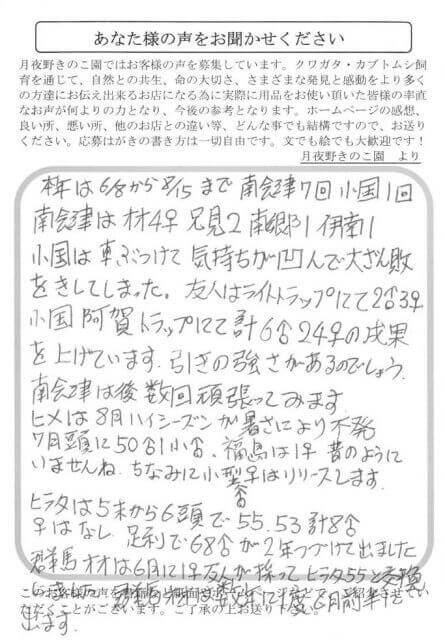 あなた様の声をお聞かせください
月夜野きのこ園ではお客様の声を募集しています。クワガタ・カブトムシ飼
育を通じて、自然との共生、命の大切さ、さまざまな発見と感動をより多く
の方達にお伝え出来るお店になる為に実際に用品をお使い頂いた皆様の率直
なお声が何よりの力となり、今後の参考となります。ホームページの感想、
良い所、悪い所、他のお店との違い等、どんな事でも結構ですので、お送り
ください。応募はがきの書き方は一切自由です。文でも絵でも大歓迎です！
月夜野きのこ園 より
本年は6/8から8/15まで南会津7回小国1回
南会津は材4♀ 只見2 南郷1 伊南1
小国は車ぶつけて気持ちが凹んで大ざん敗
をきしてしまった。友人はライトトラップにて2♂3♀
小国阿賀トラップにて計6♂24♀の成果
を上げています。引きの強さがあるのでしょう。
南会津は後数回頑張ってみます
ヒメは8月ハイシーズンが暑さにより不発
7月頭に50♂1小♂、福島は1♀昔のように
いませんね.ちなみに小型♂♀はリリースします.
ヒラタは5末から6頭で55.53計8♂
♀はなし 足利で68♂が2年つづけて出ました
群馬オオは6月に1♀友人が採ってヒラタ55と交換
このお客様の声を
ご紹介させてい
ただくことがございます。ご了承の上お送り
6月前半に
出ます.